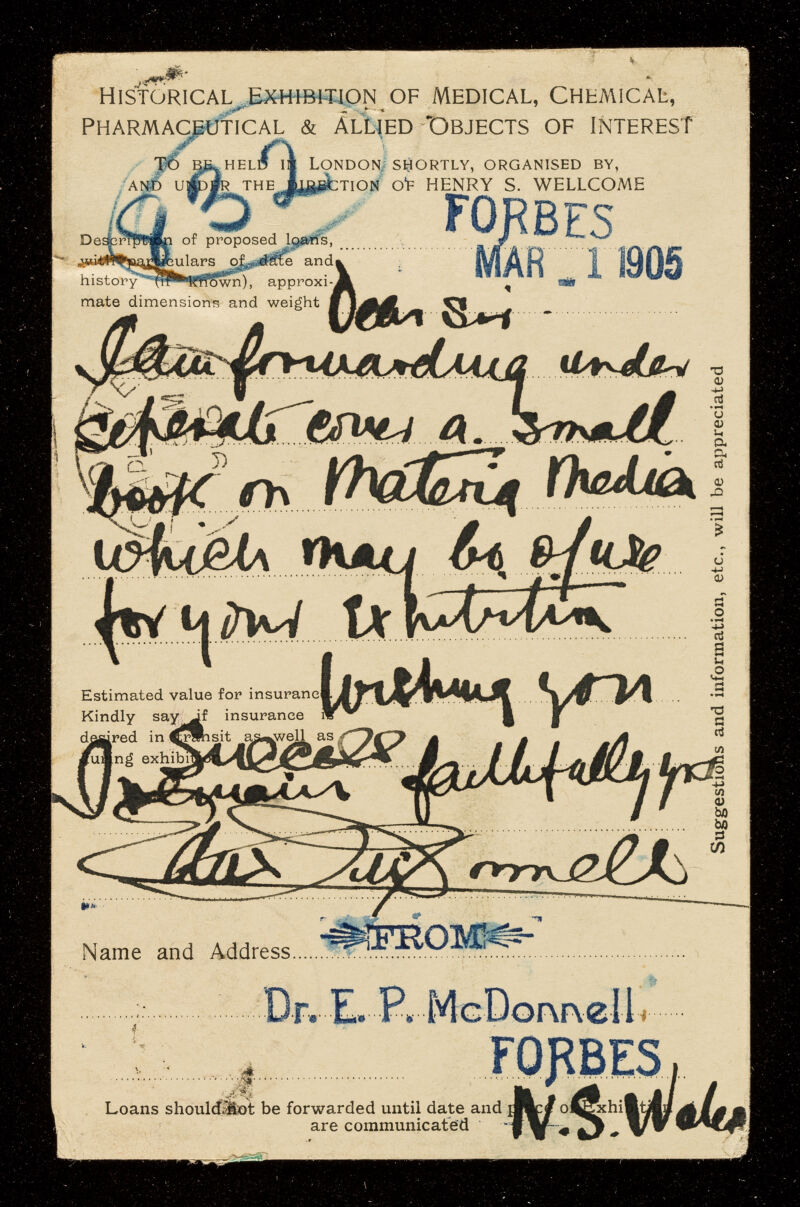 HISTORICAL EXHIBITION OF MEDICAL, CHEMICAL,
PHARMACEUTICAL & ALLIED OBJECTS OF INTEREST
TO BE HELD IN LONDON SHORTLY, ORGANISED BY,
AND UNDER THE DIRECTION OF HENRY S. WELLCOME
832
FORBES
MAR _ 1 1905
Description of proposed loans,
with particulars of date and
history (if known), approxi-
mate dimensions and weight
Dear Sir -
I am forwarding under
seperate cover a small
book on Materia Medica
which may be of use
for your Exhibition
Wishing you
Success
I remain faithfully yrs
Estimated value for insurance.
Kindly say if insurance is
desired in transit as well as
during exhibition
McDonnell
Suggestions and information, etc., will be appreciated
Name and Address
FROM
Dr. E. P. McDonnell.
FORBES,
N.S. Wales
Loans should not be forwarded until date and place of Exhibition
are communicated